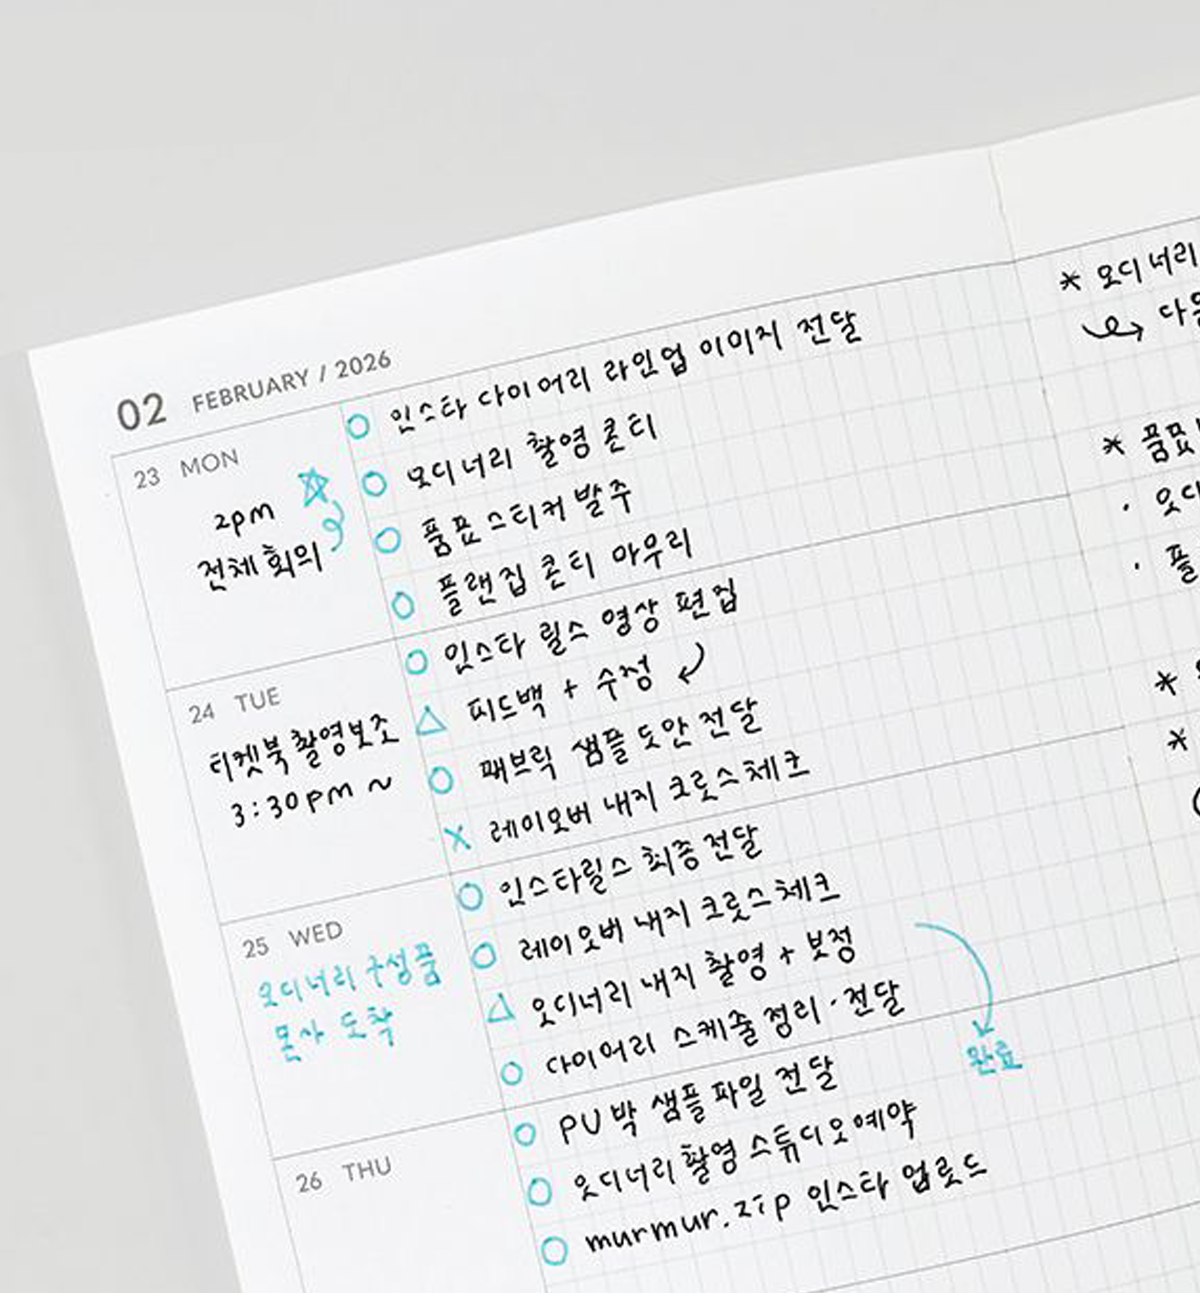 02 FEBRUARY / 2026
23 MON
2pm
전체 회의
인스타 다이어리 라인업 이미지 전달
오디너리 촬영 콘티
품표 스티커 발주
플랜집 콘티 마무리
24 TUE
티켓북 촬영보조
3:30pm ~
인스타 릴스 영상 편집
피드백 + 수정
패브릭 샘플 도안 전달
레이오버 내지 크로스체크
25 WED
오디너리 구성품
본사 도착
인스타릴스 최종 전달
레이오버 내지 크로스체크
오디너리 내지 촬영 + 보정
다이어리 스케줄 정리·전달
완료
26 THU
PU 박 샘플 파일 전달
오디너리 촬영 스튜디오 예약
murmur.zip 인스타 업로드
* 오디너리
* 품표